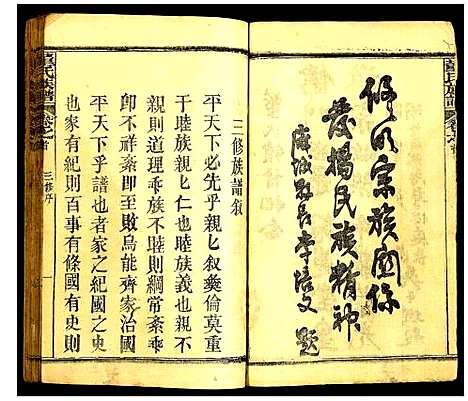 修明宗族關係
發揚民族精神
縣長李培文題
三修族譜敘
平天下必先乎親親敘彝倫莫重
于睦族親親仁也睦族義也親不
親則道理乖族不睦則綱常紊乖
卽不祥紊卽至敗烏能齊家治國
平天下乎譜也者家之紀國之史
也家有紀則百事有條國有史則
三修序
氏族譜
卷之首